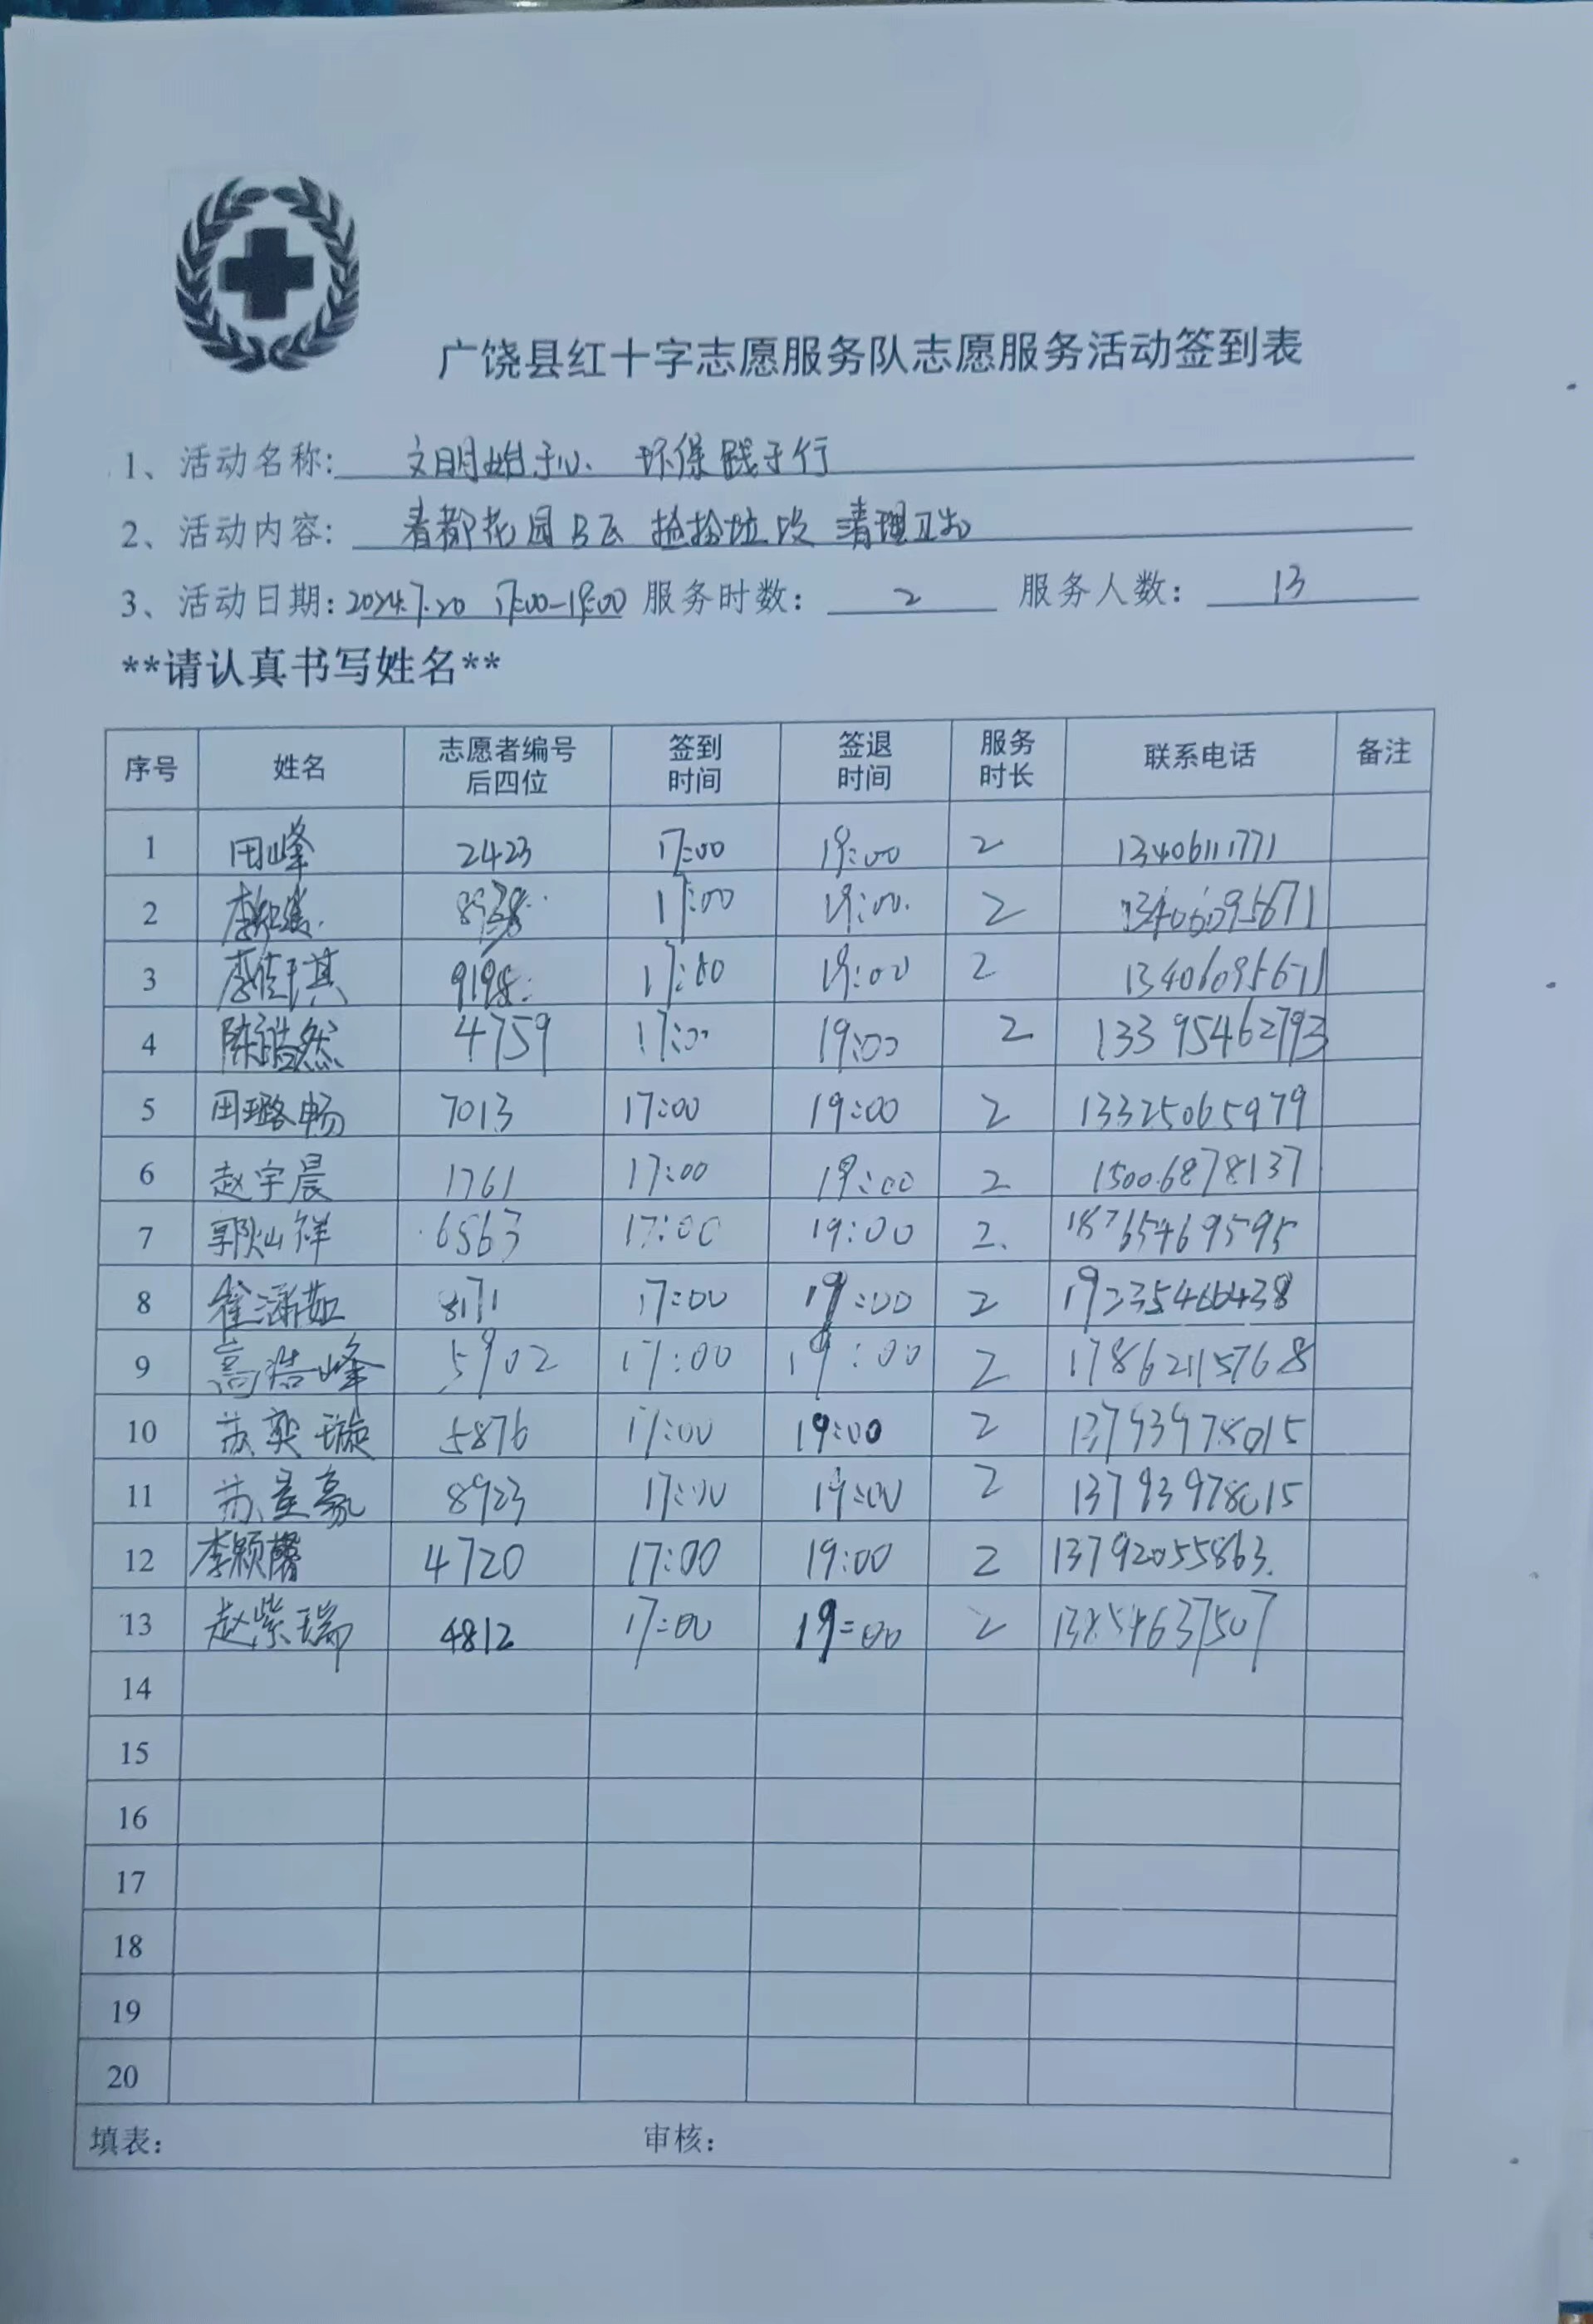 广饶县红十字志愿服务队志愿服务活动签到表
1、活动名称: 文明始于心 环保践于行
2、活动内容: 春都花园B区 捡拾垃圾 清理卫生
3、活动日期: 2024.7.20 17:00-19:00 服务时数: 2 服务人数: 13
**请认真书写姓名**
序号 姓名 志愿者编号后四位 签到时间 签退时间 服务时长 联系电话 备注
1 田峰 2423 17:00 19:00 2 13406111771
2 17:00 19:00. 2 13406095671
3 李佳琪 9198 17:00 19:00 2 13406095671
4 陈浩然 4759 17:00 19:00 2 13395462793
5 田璐畅 7013 17:00 19:00 2 13325065979
6 赵宇晨 1761 17:00 19:00 2 15006878137
7 郭灿祥 6563 17:00 19:00 2. 18765469595
8 崔涵茹 8171 17:00 19:00 2 19235466438
9 高浩峰 5902 17:00 19:00 2 17862115768
10 苏奕璇 5876 17:00 19:00 2 13793978015
11 苏星豪 8923 17:00 19:00 2 13793978015
12 李颖馨 4720 17:00 19:00 2 13792055863.
13 赵紫瑞 4812 17:00 19:00 2 13854637507
14
15
16
17
18
19
20
填表: 审核: